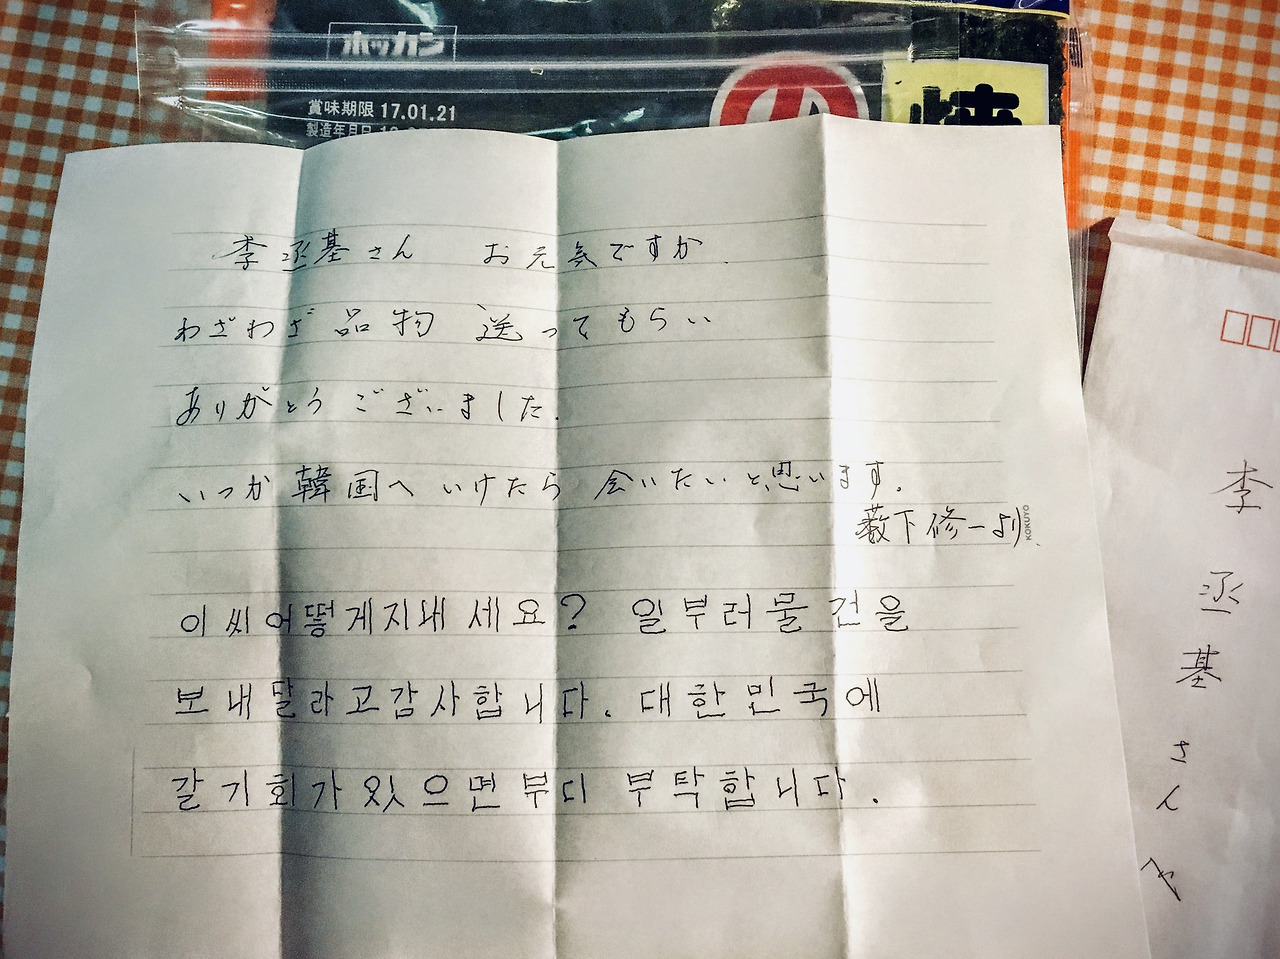 ホッカン
賞味期限 17.01.21
製造年月日
焼
李丞基さん お元気ですか
わざわざ品物 送ってもらい
ありがとう ございました.
いつか韓国へ いけたら 会いたいと思います.
薮下修一より
KOKUYO
이씨어떻게지내세요? 일부러물건을
보내달라고감사합니다. 대한민국에
갈기회가있으면부디 부탁합니다.
李丞基さんへ